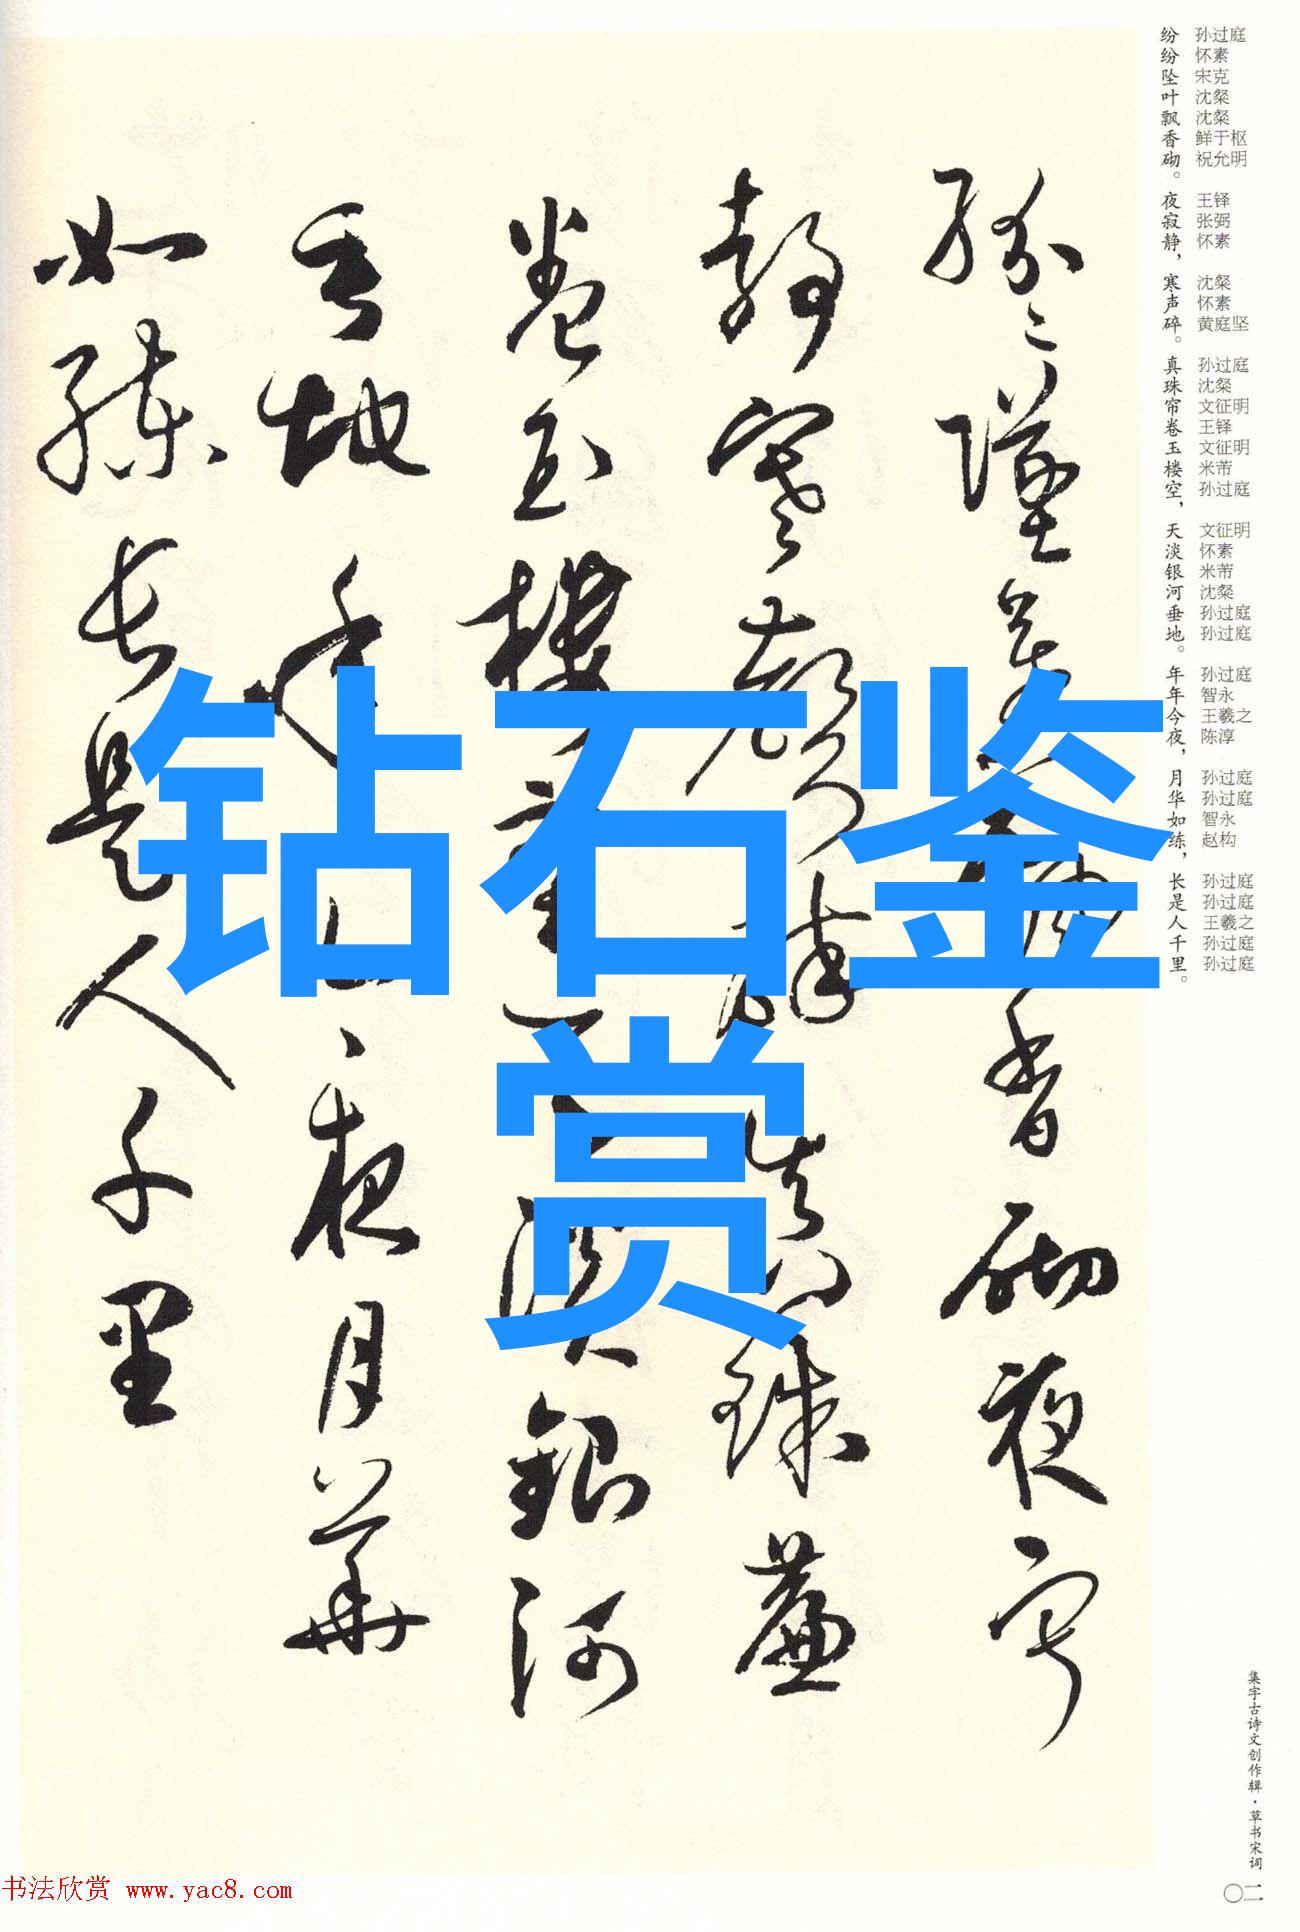 孙过庭 怀素 宋克 沈粲 沈粲 鲜于枢 祝允明 王铎 张弼 怀素 沈粲 怀素 黄庭坚 孙过庭 沈粲 文征明 王铎 文征明 米芾 孙过庭 文征明 怀素 米芾 沈粲 孙过庭 孙过庭 孙过庭 智永 王羲之 陈淳 孙过庭 孙过庭 智永 赵构 孙过庭 孙过庭 王羲之 孙过庭 孙过庭
纷纷坠叶飘香砌。夜寂静，寒声碎。真珠帘卷玉楼空，天淡银河垂地。年年今夜，月华如练，长是人千里。
紛々墜葉飄香砌夜寂
靜寒聲碎真珠簾
卷玉樓空天淡銀河
垂地年々今夜月華
如練長是人千里
钻石鉴
赏
集字古诗文创作辑·草书宋词
〇二
书法欣赏 www.yac8.com